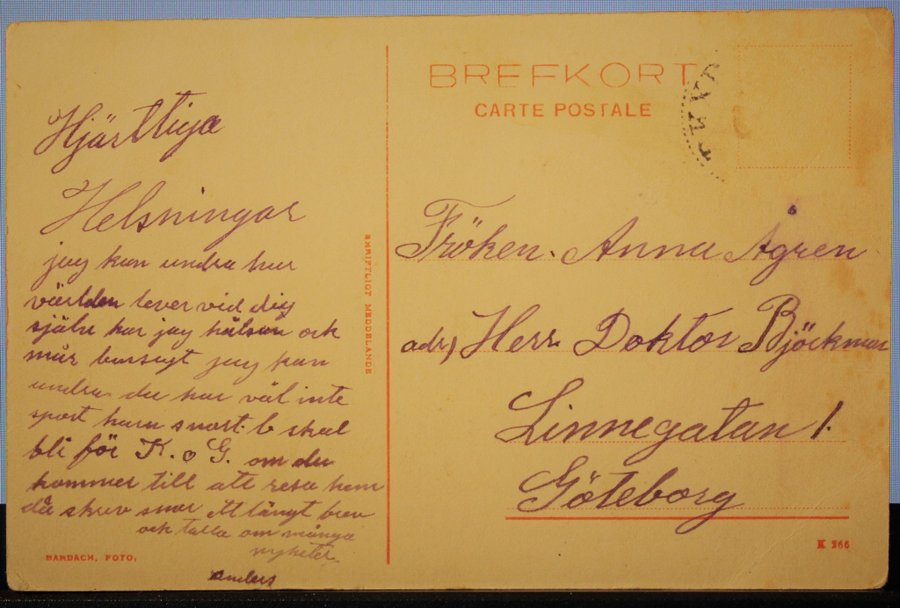 Hjärtliga
Helsningar
jag kan undra hur
världen lever vid dig
själv har jag hälsan och
mår jag kan
undra du har väl inte
sport b skal
bli för K. o G. om du
kommer till att resa hem
då skriv snar ett långt brev
och tala om många
nyheter.
anders
BARDACH, FOTO.
SKRIFTLIGT MEDDELANDE
BREFKORT
CARTE POSTALE
Fröken. Anna Ågren
adr, Herr. Doktor Björkman
Linnegatan 1.
Göteborg
K 266